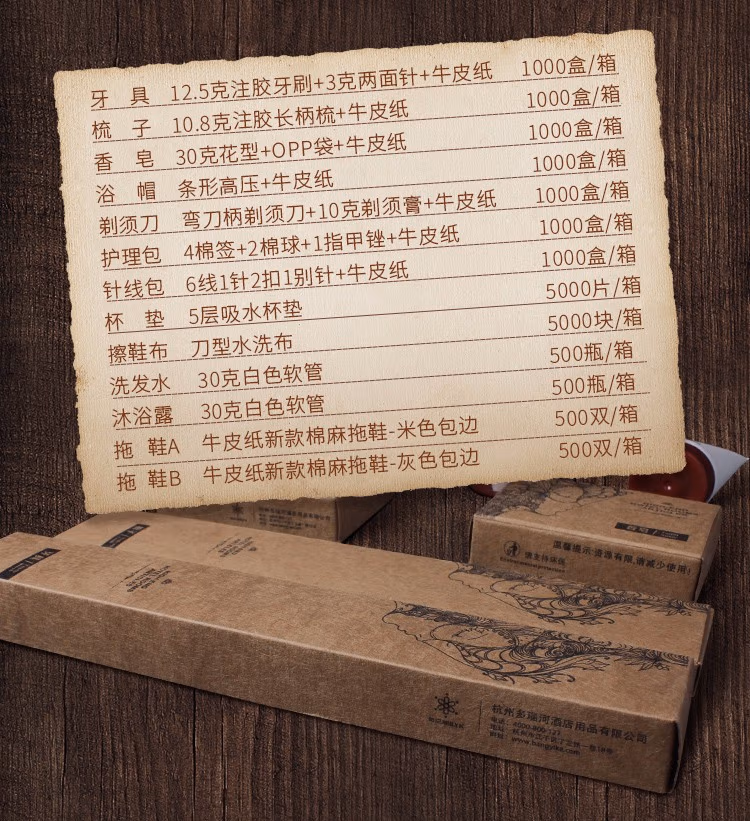 牙 具 12.5克注胶牙刷+3克两面针+牛皮纸 1000盒/箱
梳 子 10.8克注胶长柄梳+牛皮纸 1000盒/箱
香 皂 30克花型+OPP袋+牛皮纸 1000盒/箱
浴 帽 条形高压+牛皮纸 1000盒/箱
剃须刀 弯刀柄剃须刀+10克剃须膏+牛皮纸 1000盒/箱
护理包 4棉签+2棉球+1指甲锉+牛皮纸 1000盒/箱
针线包 6线1针2扣1别针+牛皮纸 1000盒/箱
杯 垫 5层吸水杯垫 5000片/箱
擦鞋布 刀型水洗布 5000块/箱
洗发水 30克白色软管 500瓶/箱
沐浴露 30克白色软管 500瓶/箱
拖 鞋A 牛皮纸新款棉麻拖鞋-米色包边 500双/箱
拖 鞋B 牛皮纸新款棉麻拖鞋-灰色包边 500双/箱
温馨提示:资源有限,请减少使用!
杭州多瑞河酒店用品有限公司